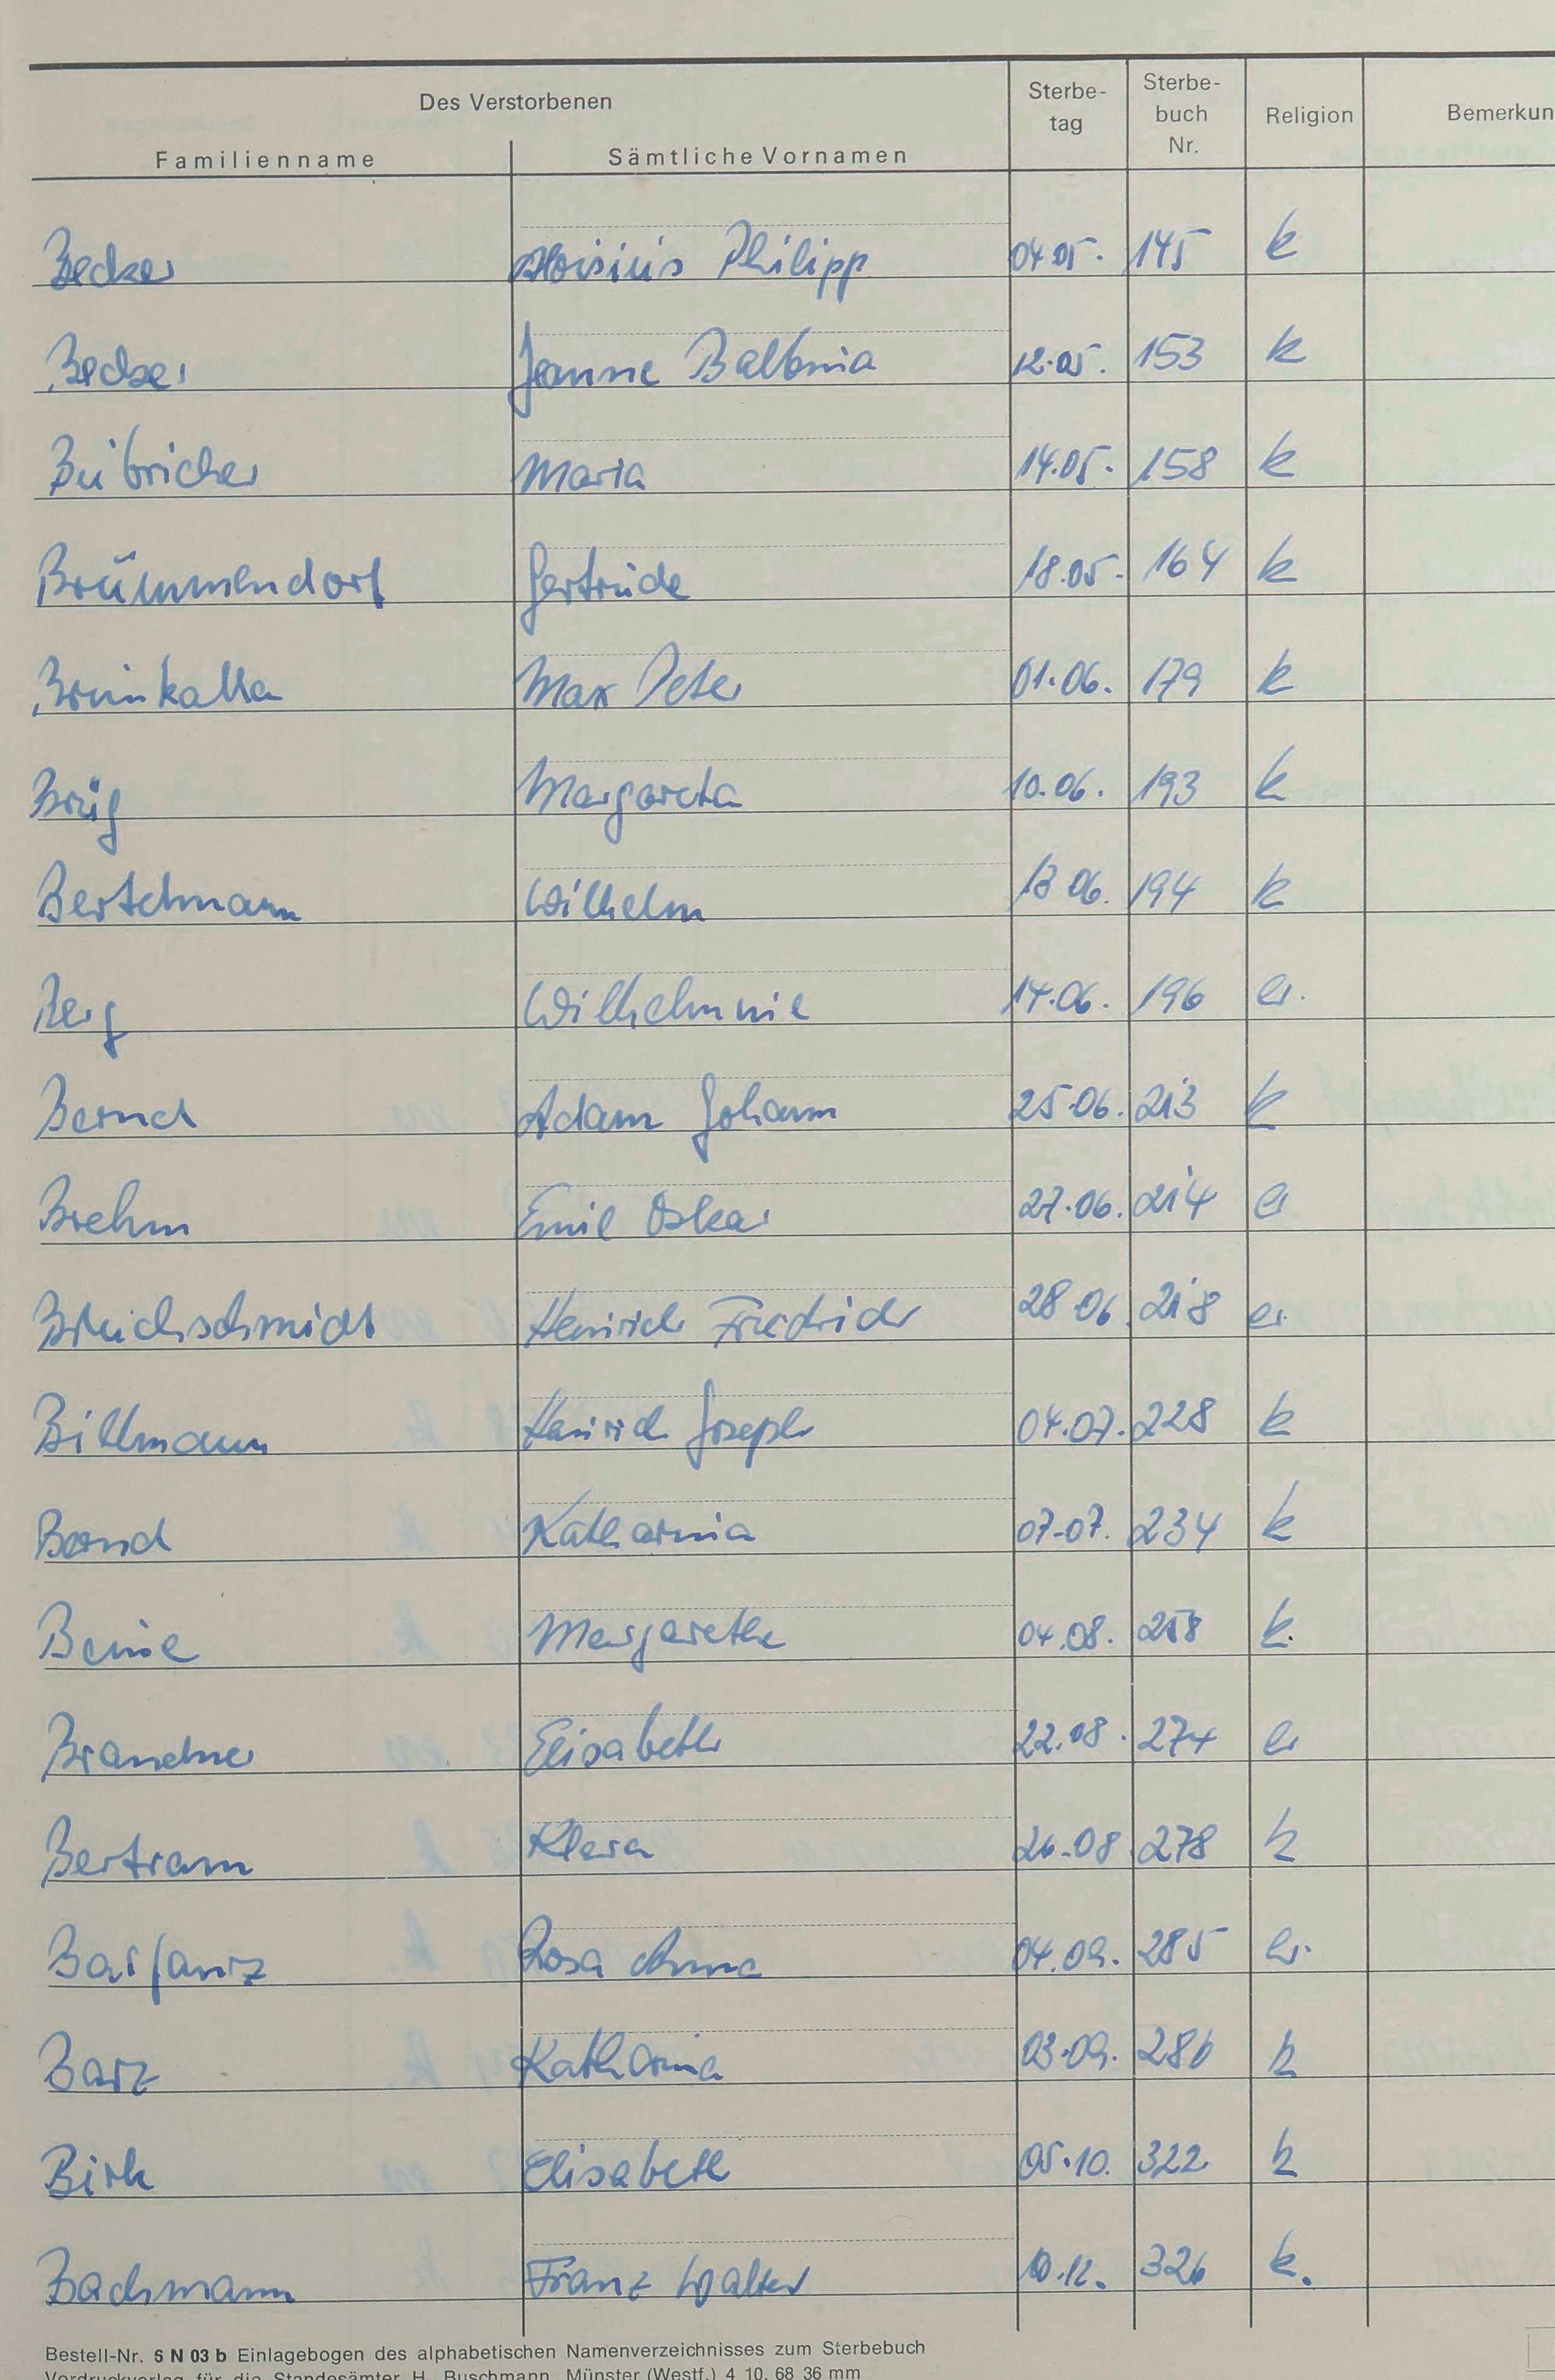 Des Verstorbenen
Sterbe-
tag
Sterbe-
buch
Nr.
Religion
Bemerkun
Familienname Sämtliche Vornamen
Becker Aloisius Philipp 04.05. 145 k
Becker Jeanne Balbina 12.05. 153 k
Beibricher Maria 14.05. 158 k
Brümmendorf Gertrude 18.05. 164 k
Max Peter 01.06. 179 k
Brüg Margareta 10.06. 193 k
Bertelmann Wilhelm 13 06. 194 k
Berg Wilhelmine 14.06. 196 ev.
Bernd Adam Johann 25.06. 213 k
Brehm Emil Oskar 27.06. 214 ev
Bleichschmidt Heinrich Friedrich 28 06. 218 ev.
Billmann Heinrich Joseph 04.07. 228 k
Bernd Katharina 07.07. 234 k
Margarethe 04.08. 258 k.
Brandner Elisabeth 22.08. 274 ev
Bertram Klara 26.08. 278 k
Barfanz Rosa Anna 04.09. 285 ev.
Barz Katharina 03.09. 286 k
Birk Elisabeth 05.10. 322 k
Bachmann Franz Walter 326 k.
Bestell-Nr. 6 N 03 b Einlagebogen des alphabetischen Namenverzeichnisses zum Sterbebuch
Vordruckverlag für die Standesämter H. Buschmann, Münster (Westf.) 4 10. 68 36 mm